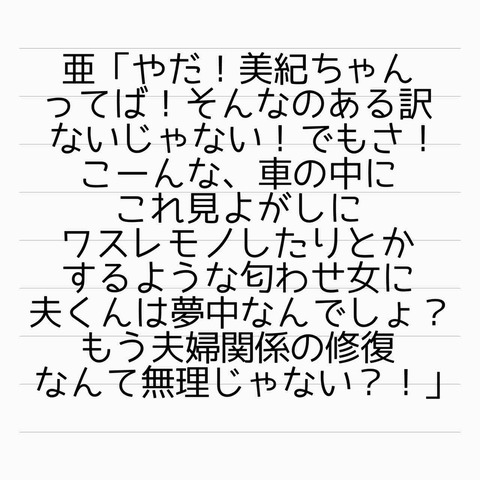 亜「やだ！美紀ちゃん
ってば！そんなのある訳
ないじゃない！でもさ！
こーんな、車の中に
これ見よがしに
ワスレモノしたりとか
するような匂わせ女に
夫くんは夢中なんでしょ？
もう夫婦関係の修復
なんて無理じゃない？！」